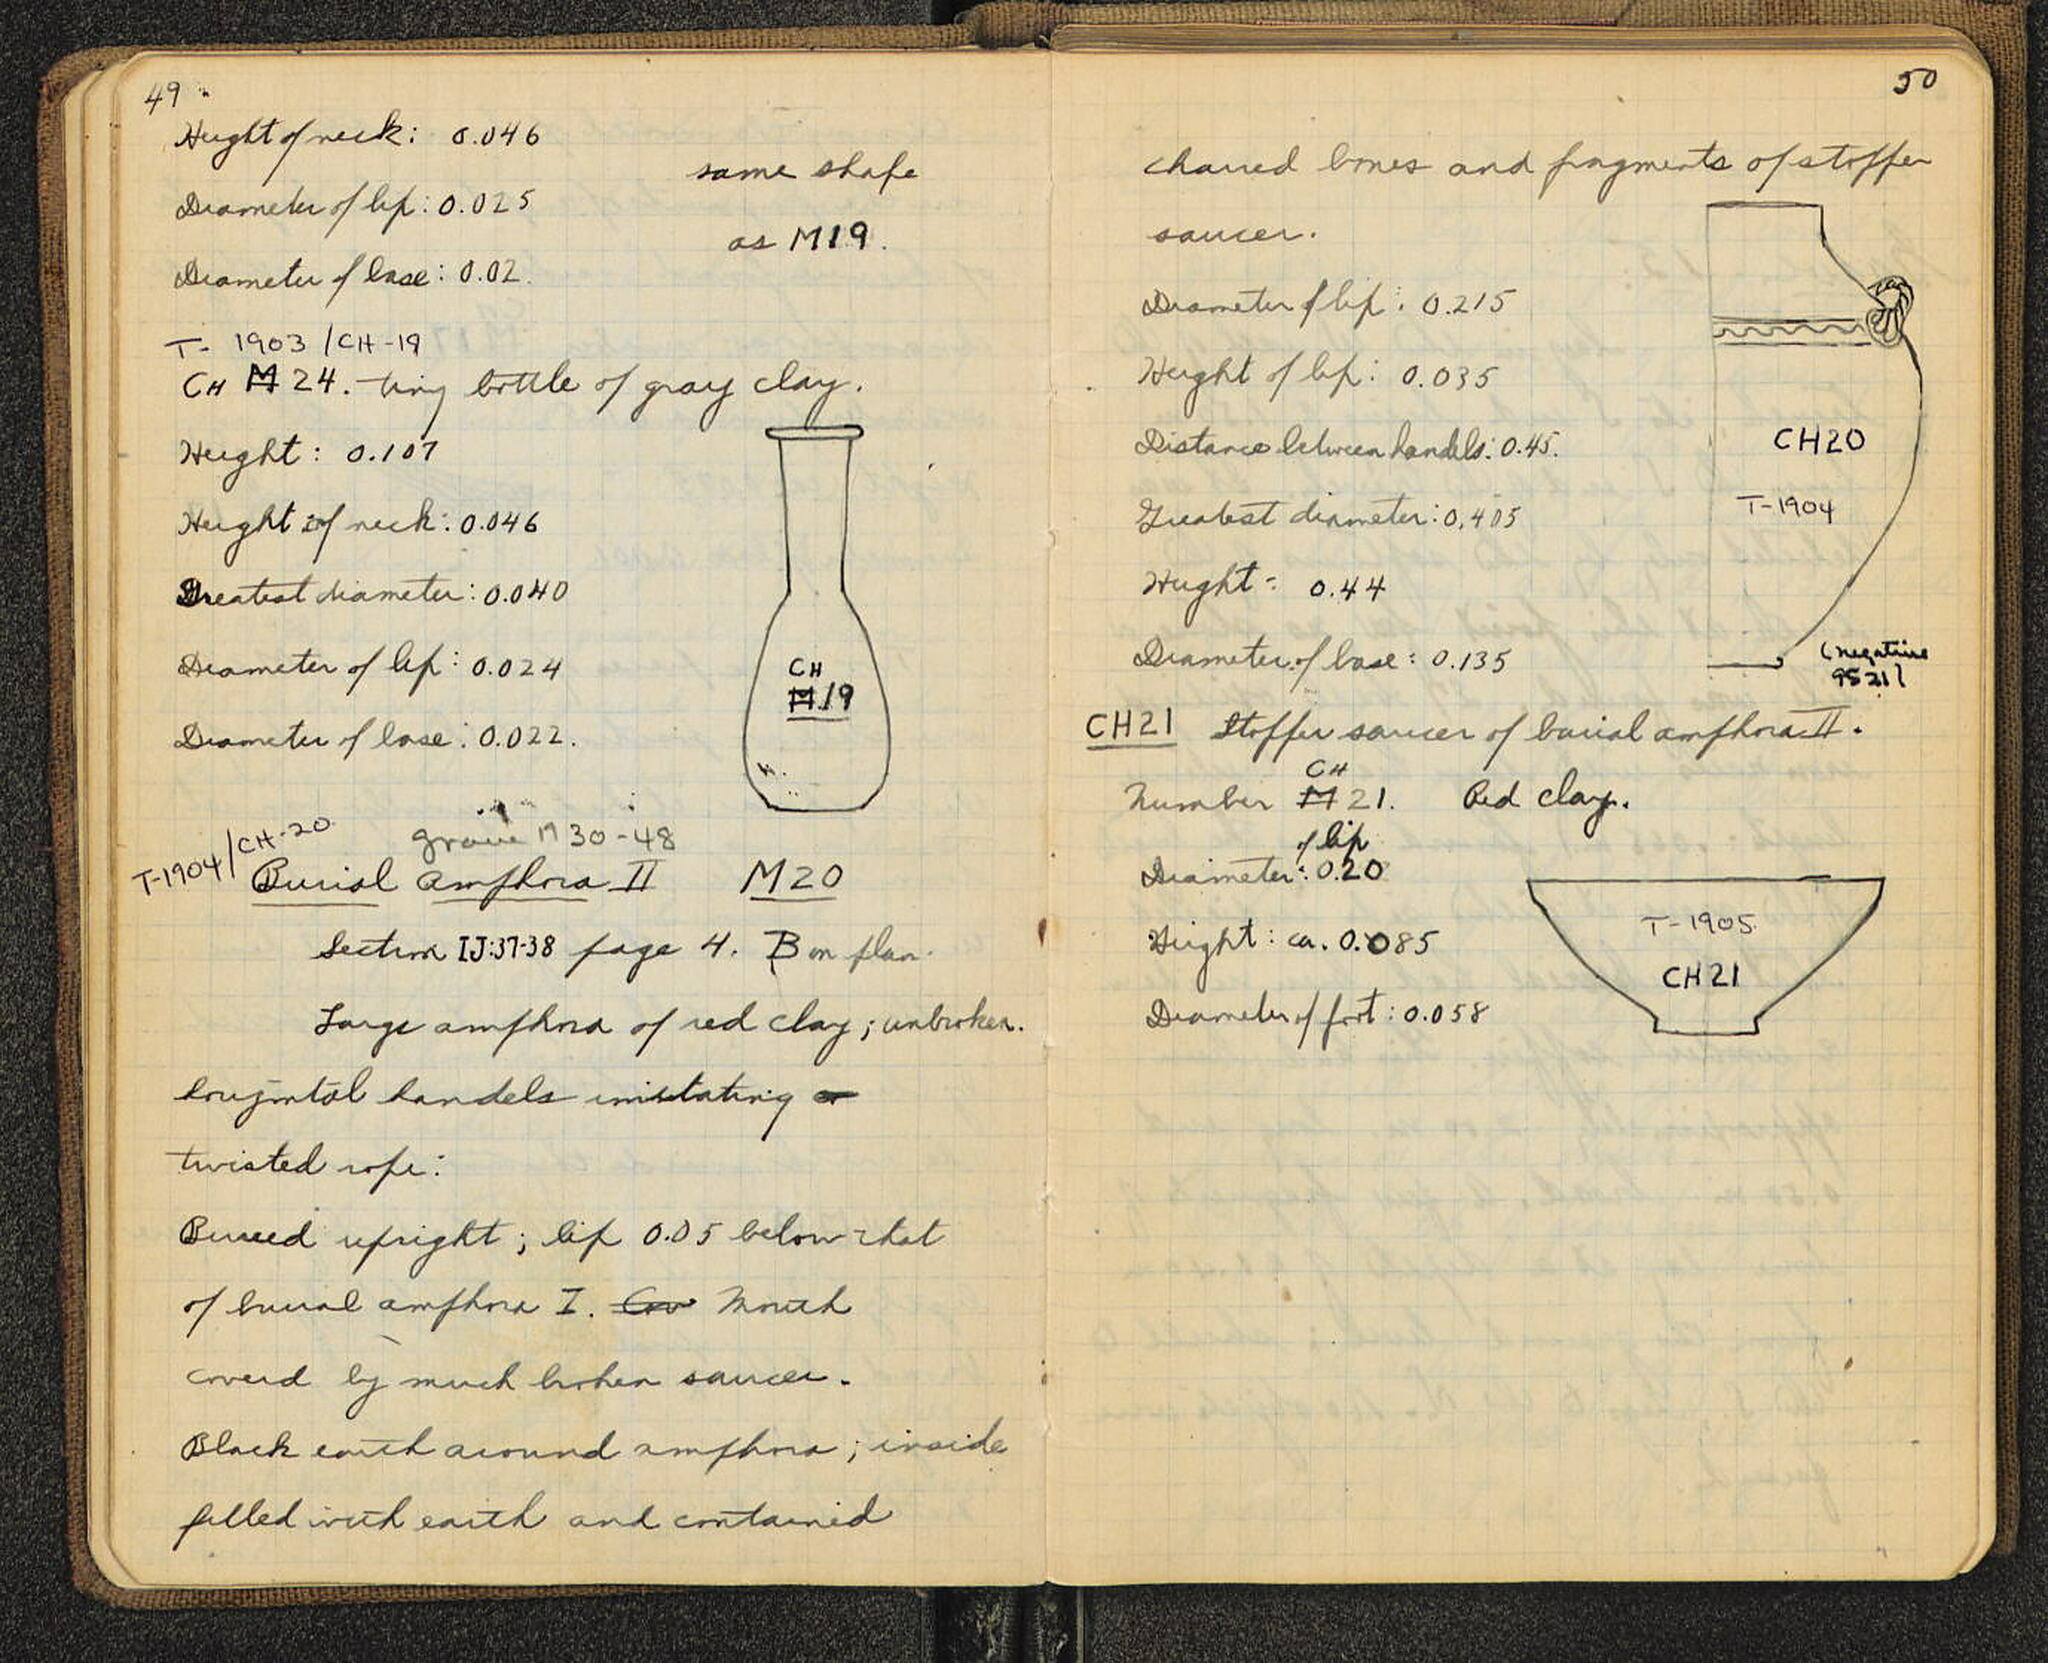 49
Height of neck: 0.046
same shape
Diameter of lip: 0.025
as M19.
Diameter of base: 0.02.
T- 1903 / CH-19
CH M 24. tiny bottle of gray clay.
Height: 0.107
Height of neck: 0.046
Greatest diameter: 0.040
Diameter of lip: 0.024
CH
M.19
Diameter of base: 0.022.
T-1904/CH-20
grave M 30-48
Burial amphora II M20
Section IJ:37-38 page 4. B on plan.
Large amphora of red clay; unbroken.
horizontal handels imitating a
twisted rope:
Buried upright; lip 0.05 below that
of burial amphora I. Cov Mouth
coverd by much broken saucer.
Black earth around amphora; inside
filled with earth and contained
50
charred bones and fragments of stopper
saucer.
Diameter of lip: 0.215
Height of lip: 0.035
Distance between handels: 0.45.
CH20
Greatest diameter: 0.405
T-1904
Height: 0.44
Diameter of base: 0.135
(negative
9521)
CH21 Stopper saucer of burial amphora II.
CH
Number M 21. Red clay.
of lip
Diameter: 0.20
T-1905.
Height: ca. 0.085
CH21
Diameter of foot: 0.058